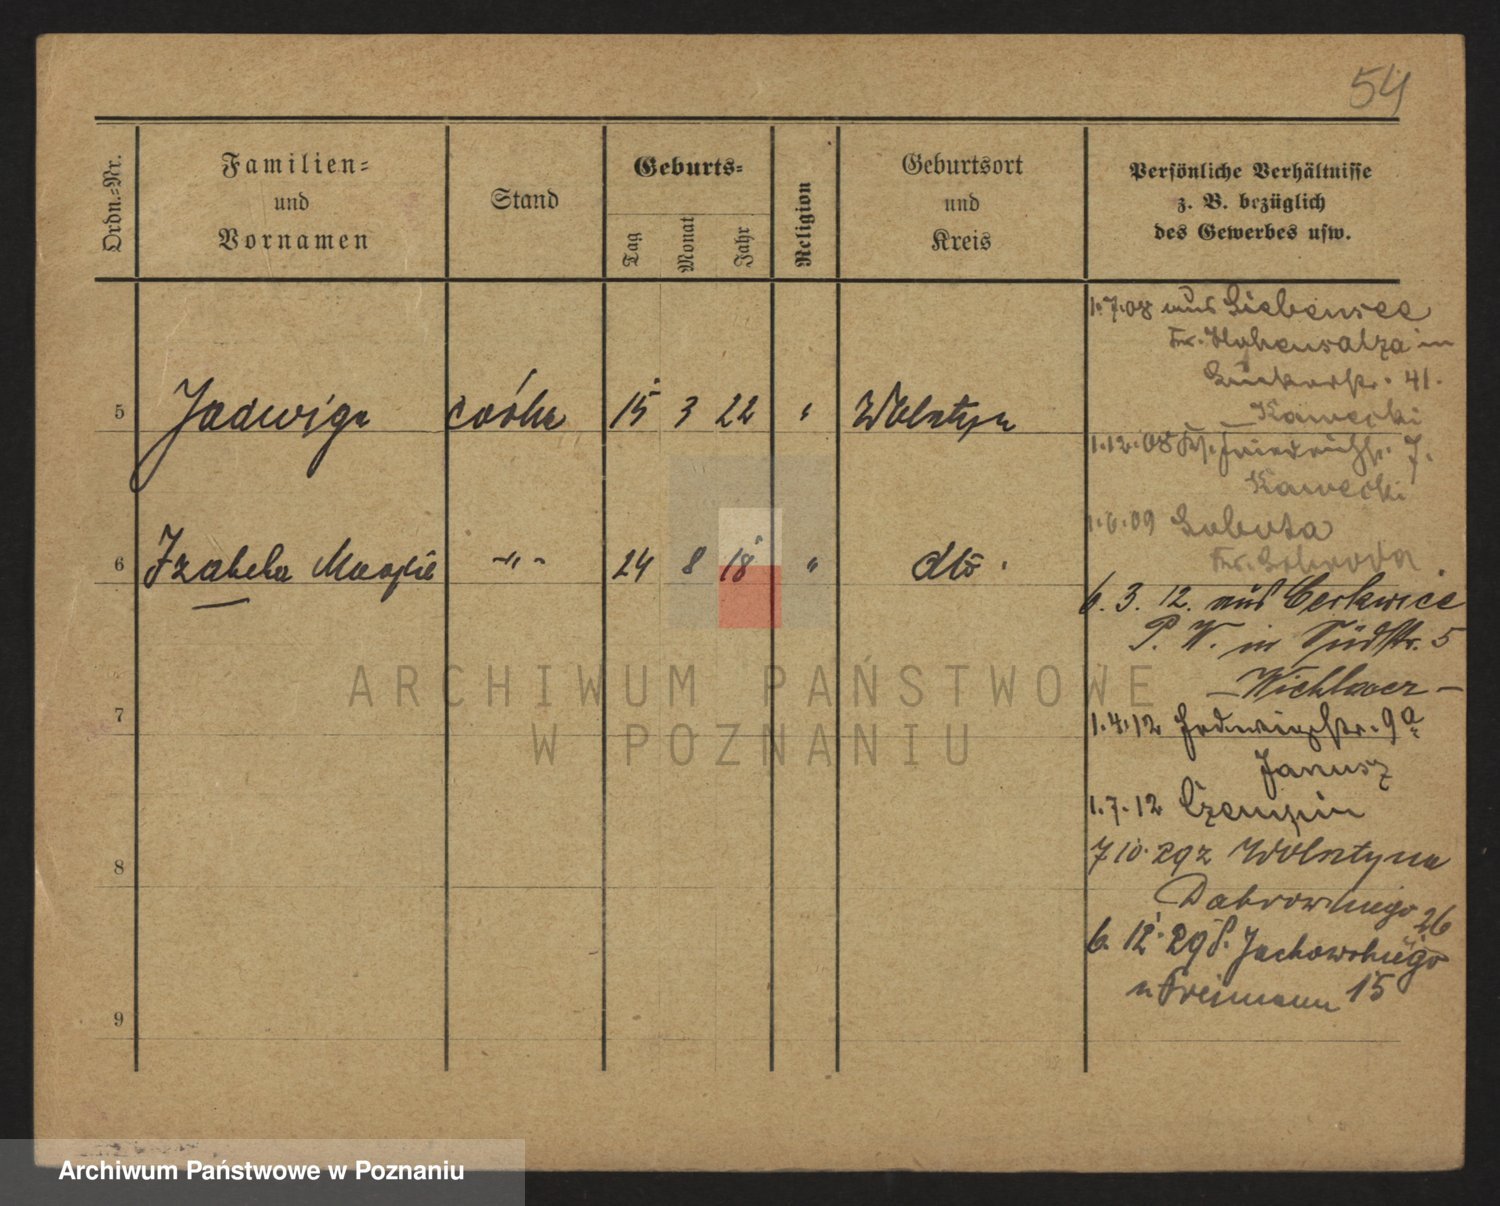 54
Ordn.=Nr.
Familien=
und
Vornamen
Stand
Geburts=
Tag
Monat
Jahr
Religion
Geburtsort
und
Kreis
Persönliche Verhältnisse
z. B. bezüglich
des Gewerbes usw.
1.7.08 aus Liebensee
Kr. Hohensalza in
41.
Kawecki
5 Jadwiga córka 15 3 22 " Wolsztyn
1.12.08 Friedrichstr. 7.
Kawecki
1.6.09
Kr. Schroda
6 Izabela -"- 24 8 18 " dto.
6. 3. 12. aus Cerkwice
P. W. in Südstr. 5
7
1.4.12 Hedwigstr. 9a
Janusz
1.7.12 Czempin
8
7 10. 29 z Wolsztyna
Dabrowskiego 26
6. 12. 29 Jackowskiego
u Freimann 15
9
ARCHIWUM PAŃSTWOWE
W POZNANIU
Archiwum Państwowe w Poznaniu